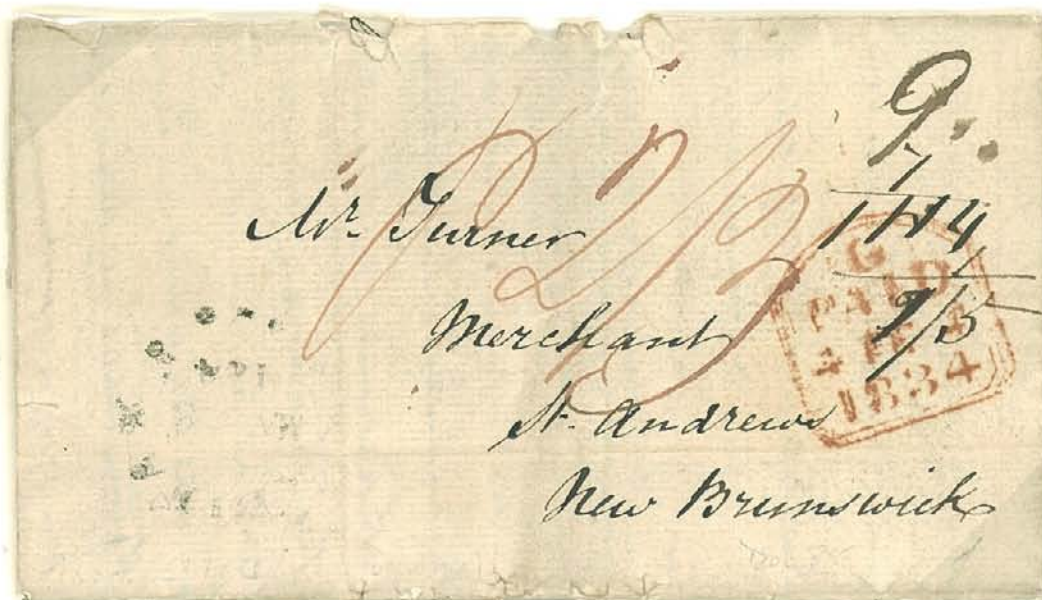 9
1/1 1/4
Mr. Turner
P 2/3
Merchant
St. Andrews
New Brunswick
G
PAID
4 FE 4
1834